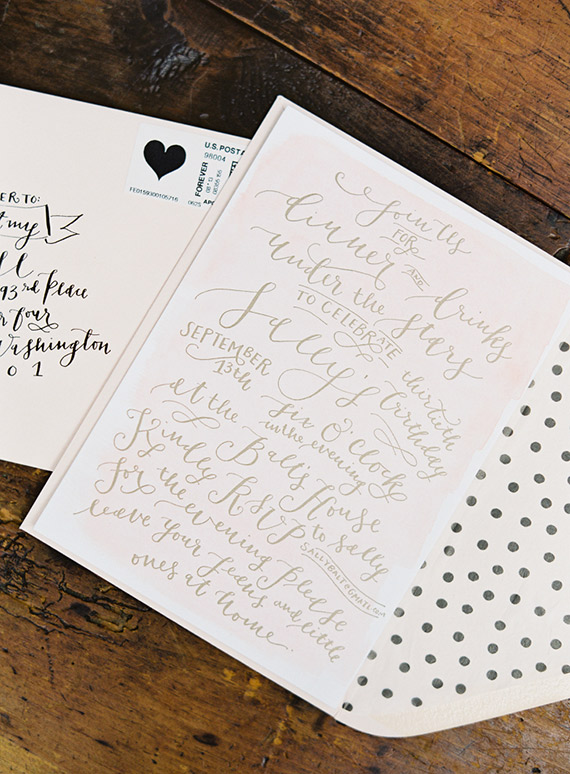 ER TO:
my
ll
93rd Place
r four
Washington
0 1
U.S. POSTA
98004
FOREVER
FE0159300105716
0625
Join Us
FOR
dinner AND drinks
Under the stars
TO CELEBRATE
Sally's thirtieth birthday
SEPTEMBER 13th
six O'Clock
in the evening
at the Balt's House
Kindly RSVP to Sally
SALLYBALT@GMAIL.COM
for the evening please
leave your teens and little
ones at home.